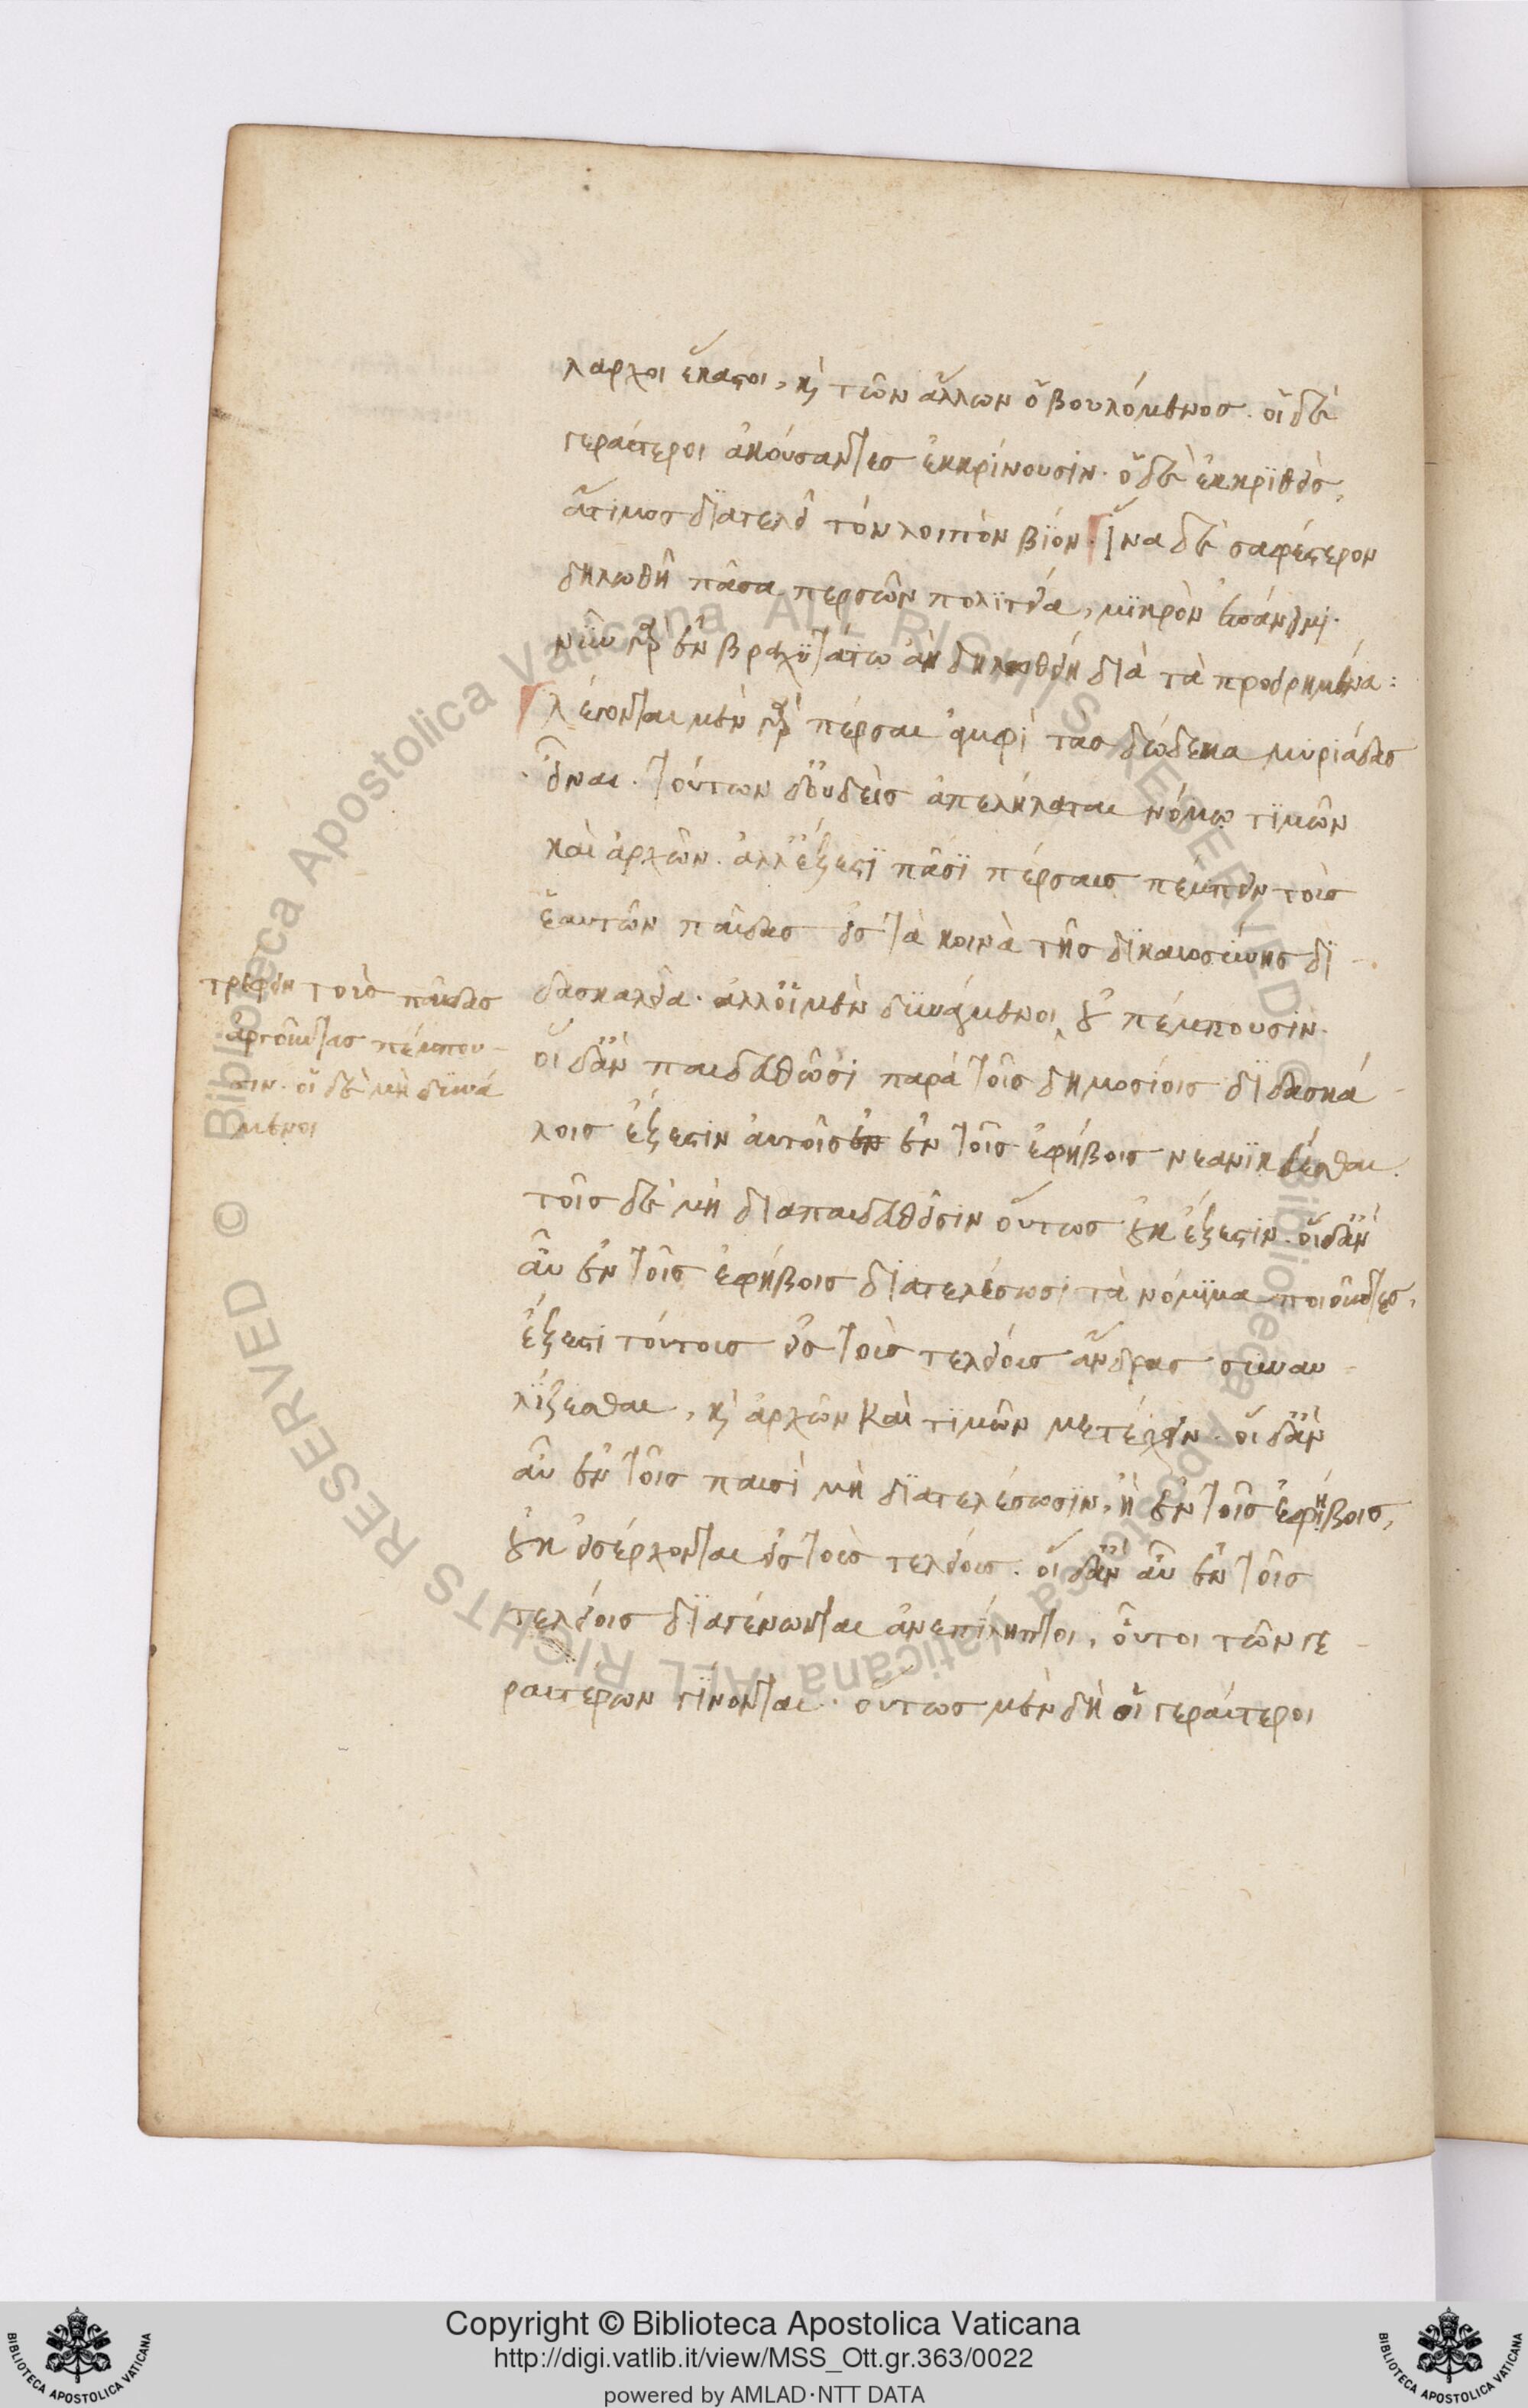 λαρχοι ἕκαστοι, καὶ τῶν ἄλλων ὁ βουλόμενος. οἱ δὲ
γεραίτεροι ἀκούσαντες ἐκκρίνουσιν. ὁ δὲ ἐκκριθεὶς,
ἄτιμος διατελεῖ τὸν λοιπὸν βίον. Ἵνα δὲ σαφέστερον
δηλωθῆ πᾶσα περσῶν πολιτεία, μικρὸν ἐπάνειμι.
νῦν γὰρ ἐν βραχυτάτω ἂν δηλωθείη διὰ τὰ προειρημένα:
λέγονται μὲν γὰρ πέρσαι ἀμφὶ τὰς δώδεκα μυριάδας
εἶναι. τούτων δ' οὐδεὶς ἀπελήλαται νόμω τιμῶν
καὶ ἀρχῶν. ἀλλ' ἔξεστι πᾶσι πέρσαις πέμπειν τοὺς
ἑαυτῶν παῖδας εἰς τὰ κοινὰ τῆς δικαιοσύνης δι
δασκαλεῖα. ἀλλ' οἱ μὲν δυνάμενοι οὐ πέμπουσιν.
οἱ δ' ἂν παιδευθῶσι παρὰ τοῖς δημοσίοις διδασκά
λοις ἔξεστιν αὐτοῖς ἐν ἐν τοῖς ἐφήβοις νεανισκεύεσθαι.
τοῖς δὲ μὴ διαπαιδευθεῖσιν οὕτως οὐκ ἔξεστιν. οἱ δ' ἂν
αὖ ἐν τοῖς ἐφήβοις διατελέσωσι τὰ νόμιμα ποιοῦντες,
ἔξεστι τούτοις εἰς τοὺς τελείους ἄνδρας συναυ
λίζεσθαι, καὶ ἀρχῶν καὶ τιμῶν μετέχειν. οἱ δ' ἂν
αὖ ἐν τοῖς παισὶ μὴ διατελέσωσιν, ἢ ἐν τοῖς ἐφήβοις,
οὐκ εἰσέρχονται εἰς τοὺς τελείους. οἱ δ' ἂν αὖ ἐν τοῖς
τελείοις διαγένωνται ἀνεπίληπτοι, οὗτοι τῶν γε
ραιτέρων γίνονται. οὕτως μὲν δὴ οἱ γεραίτεροι
τρέφειν τοὺς παῖδας
ἀργοῦντας πέμπου
σιν. οἱ δὲ μὴ δυνά
μενοι
Copyright © Biblioteca Apostolica Vaticana
http://digi.vatlib.it/view/MSS_Ott.gr.363/0022
powered by AMLAD·NTT DATA
BIBLIOTECA APOSTOLICA VATICANA
BIBLIOTECA APOSTOLICA VATICANA
Biblioteca Apostolica Vaticana ALL RIGHTS RESERVED ©
Biblioteca Apostolica Vaticana ALL RIGHTS RESERVED ©